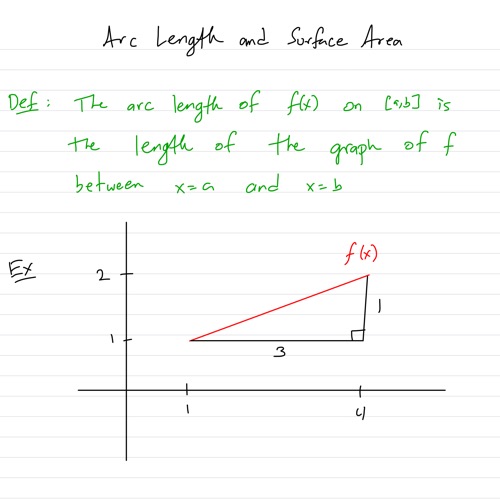 Arc Length and Surface Area
Def: The arc length of f(x) on [a,b] is
the length of the graph of f
between x=a and x=b
Ex
f(x)
2
1
1
3
1
4